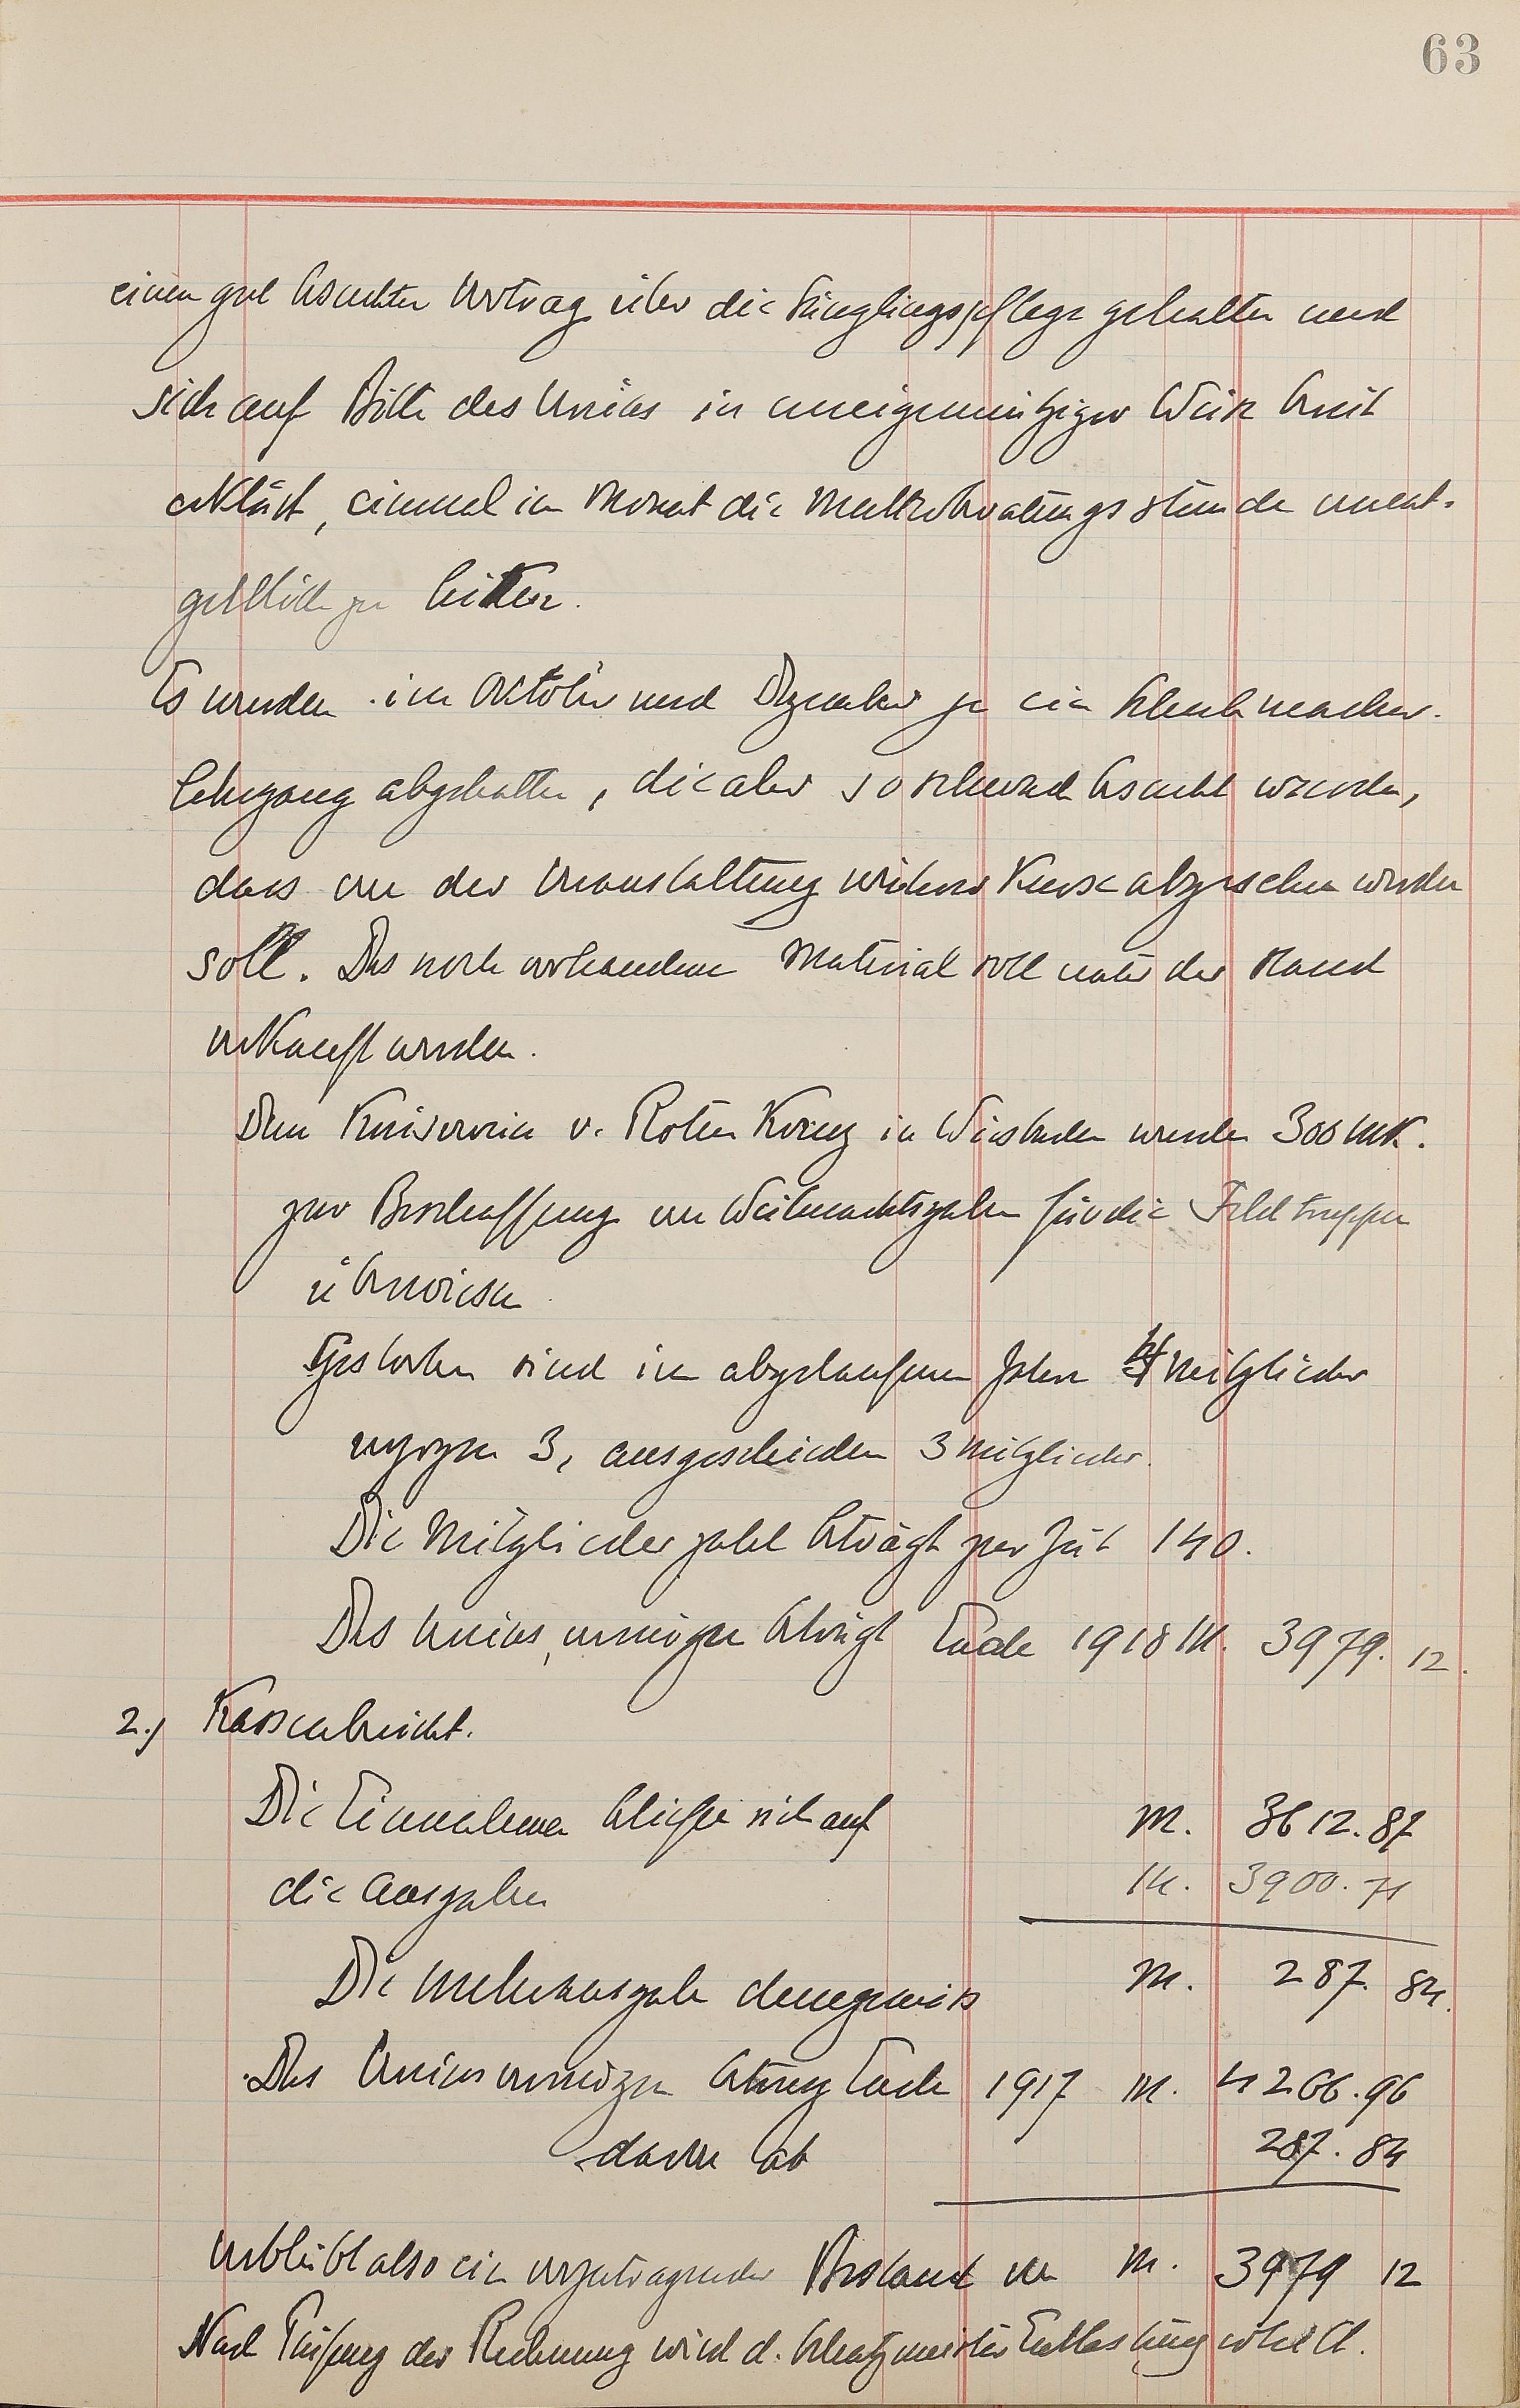 63
einen gut besuchten Vortrag über die Säuglingspflege gehalten und
sich auf Bitte des Vereins in uneigennütziger Weise bereit
erklärt, einmal im Monat die Mutterberatungsstunde unent-
geltlich zu leiten.
Es wurden im Oktober und Dezember je ein Schuhmacher-
lehrgang abgehalten, die aber so schwach besucht wurden,
dass von der Veranstaltung weiterer Kurse abgesehen werden
soll. Das noch vorhandene Material soll unter der Hand
verkauft werden.
Dem Kreisverein v. Roten Kreuz in Wiesbaden wurden 300 Mk.
zur Beschaffung von Weihnachtsgaben für die Feldtruppen
überwiesen
Gestorben sind im abgelaufenen Jahre 4 Mitglieder
verzogen 3, ausgeschieden 3 Mitglieder.
Die Mitgliederzahl beträgt zur Zeit 140.
Das Vereinsvermögen beträgt Ende 1918 M. 3979.12.
2.) Kassenbericht.
Die Einnahmen beliefen sich auf M. 3612.87
die Ausgaben M. 3900.71
Die Mehrausgabe demgemäss M. 287.84.
Das Vereinsvermögen betrug Ende 1917 M. 4266.96
davon ab 287.84
verbleibt also ein vorzutragender Bestand von M. 3979 12
Nach Prüfung der Rechnung wird d. Schatzmeister Entlastung erteilt.